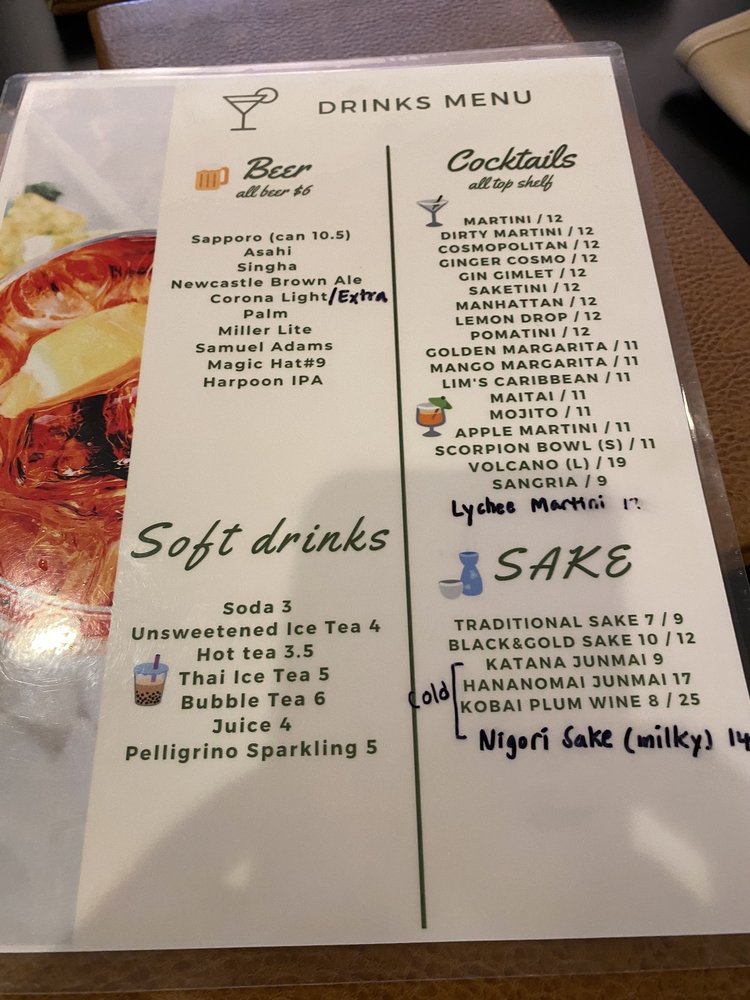 DRINKS MENU
Beer
all beer $6
Sapporo (can 10.5)
Asahi
Singha
Newcastle Brown Ale
Corona Light/Extra
Palm
Miller Lite
Samuel Adams
Magic Hat#9
Harpoon IPA
Soft drinks
Soda 3
Unsweetened Ice Tea 4
Hot tea 3.5
Thai Ice Tea 5
Bubble Tea 6
Juice 4
Pelligrino Sparkling 5
Cocktails
all top shelf
MARTINI / 12
DIRTY MARTINI / 12
COSMOPOLITAN / 12
GINGER COSMO / 12
GIN GIMLET / 12
SAKETINI / 12
MANHATTAN / 12
LEMON DROP / 12
POMATINI / 12
GOLDEN MARGARITA / 11
MANGO MARGARITA / 11
LIM'S CARIBBEAN / 11
MAITAI / 11
MOJITO / 11
APPLE MARTINI / 11
SCORPION BOWL (S) / 11
VOLCANO (L) / 19
SANGRIA / 9
Lychee Martini
SAKE
TRADITIONAL SAKE 7 / 9
BLACK&GOLD SAKE 10 / 12
KATANA JUNMAI 9
HANANOMAI JUNMAI 17
KOBAI PLUM WINE 8 / 25
Cold
Nigori Sake (milky) 14